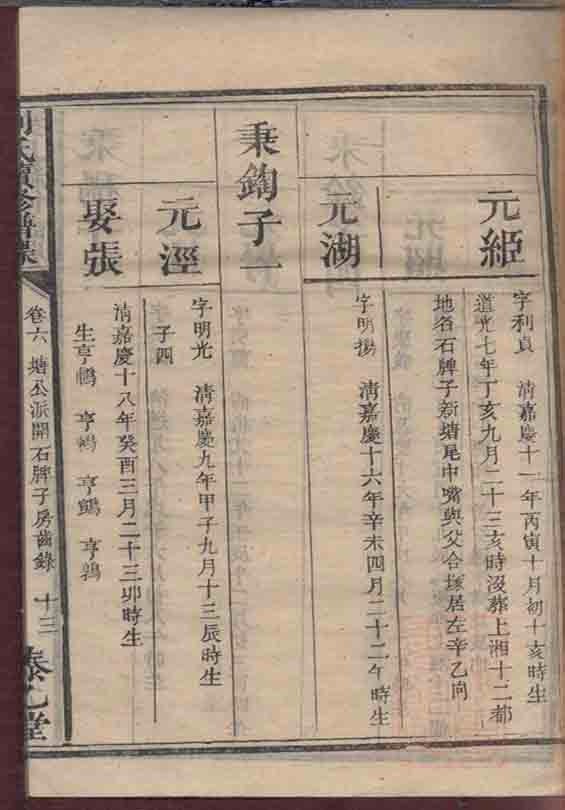 元姬
字利貞 清嘉慶十一年丙寅十月初十亥時生
道光七年丁亥九月二十三亥時沒葬上湘十二都
地名石牌子新塘尾中嘴與父合塚居左辛乙向
元湖
字明揚 清嘉慶十六年辛未四月二十二午時生
秉鈞子一
元涇
字明光 清嘉慶九年甲子九月十三辰時生
子四
娶張
清嘉慶十八年癸酉三月二十三卯時生
生亨鶴 亨 亨 亨鴉
氏續修譜
卷六 塘公派開石牌子房齒錄 十三
堂